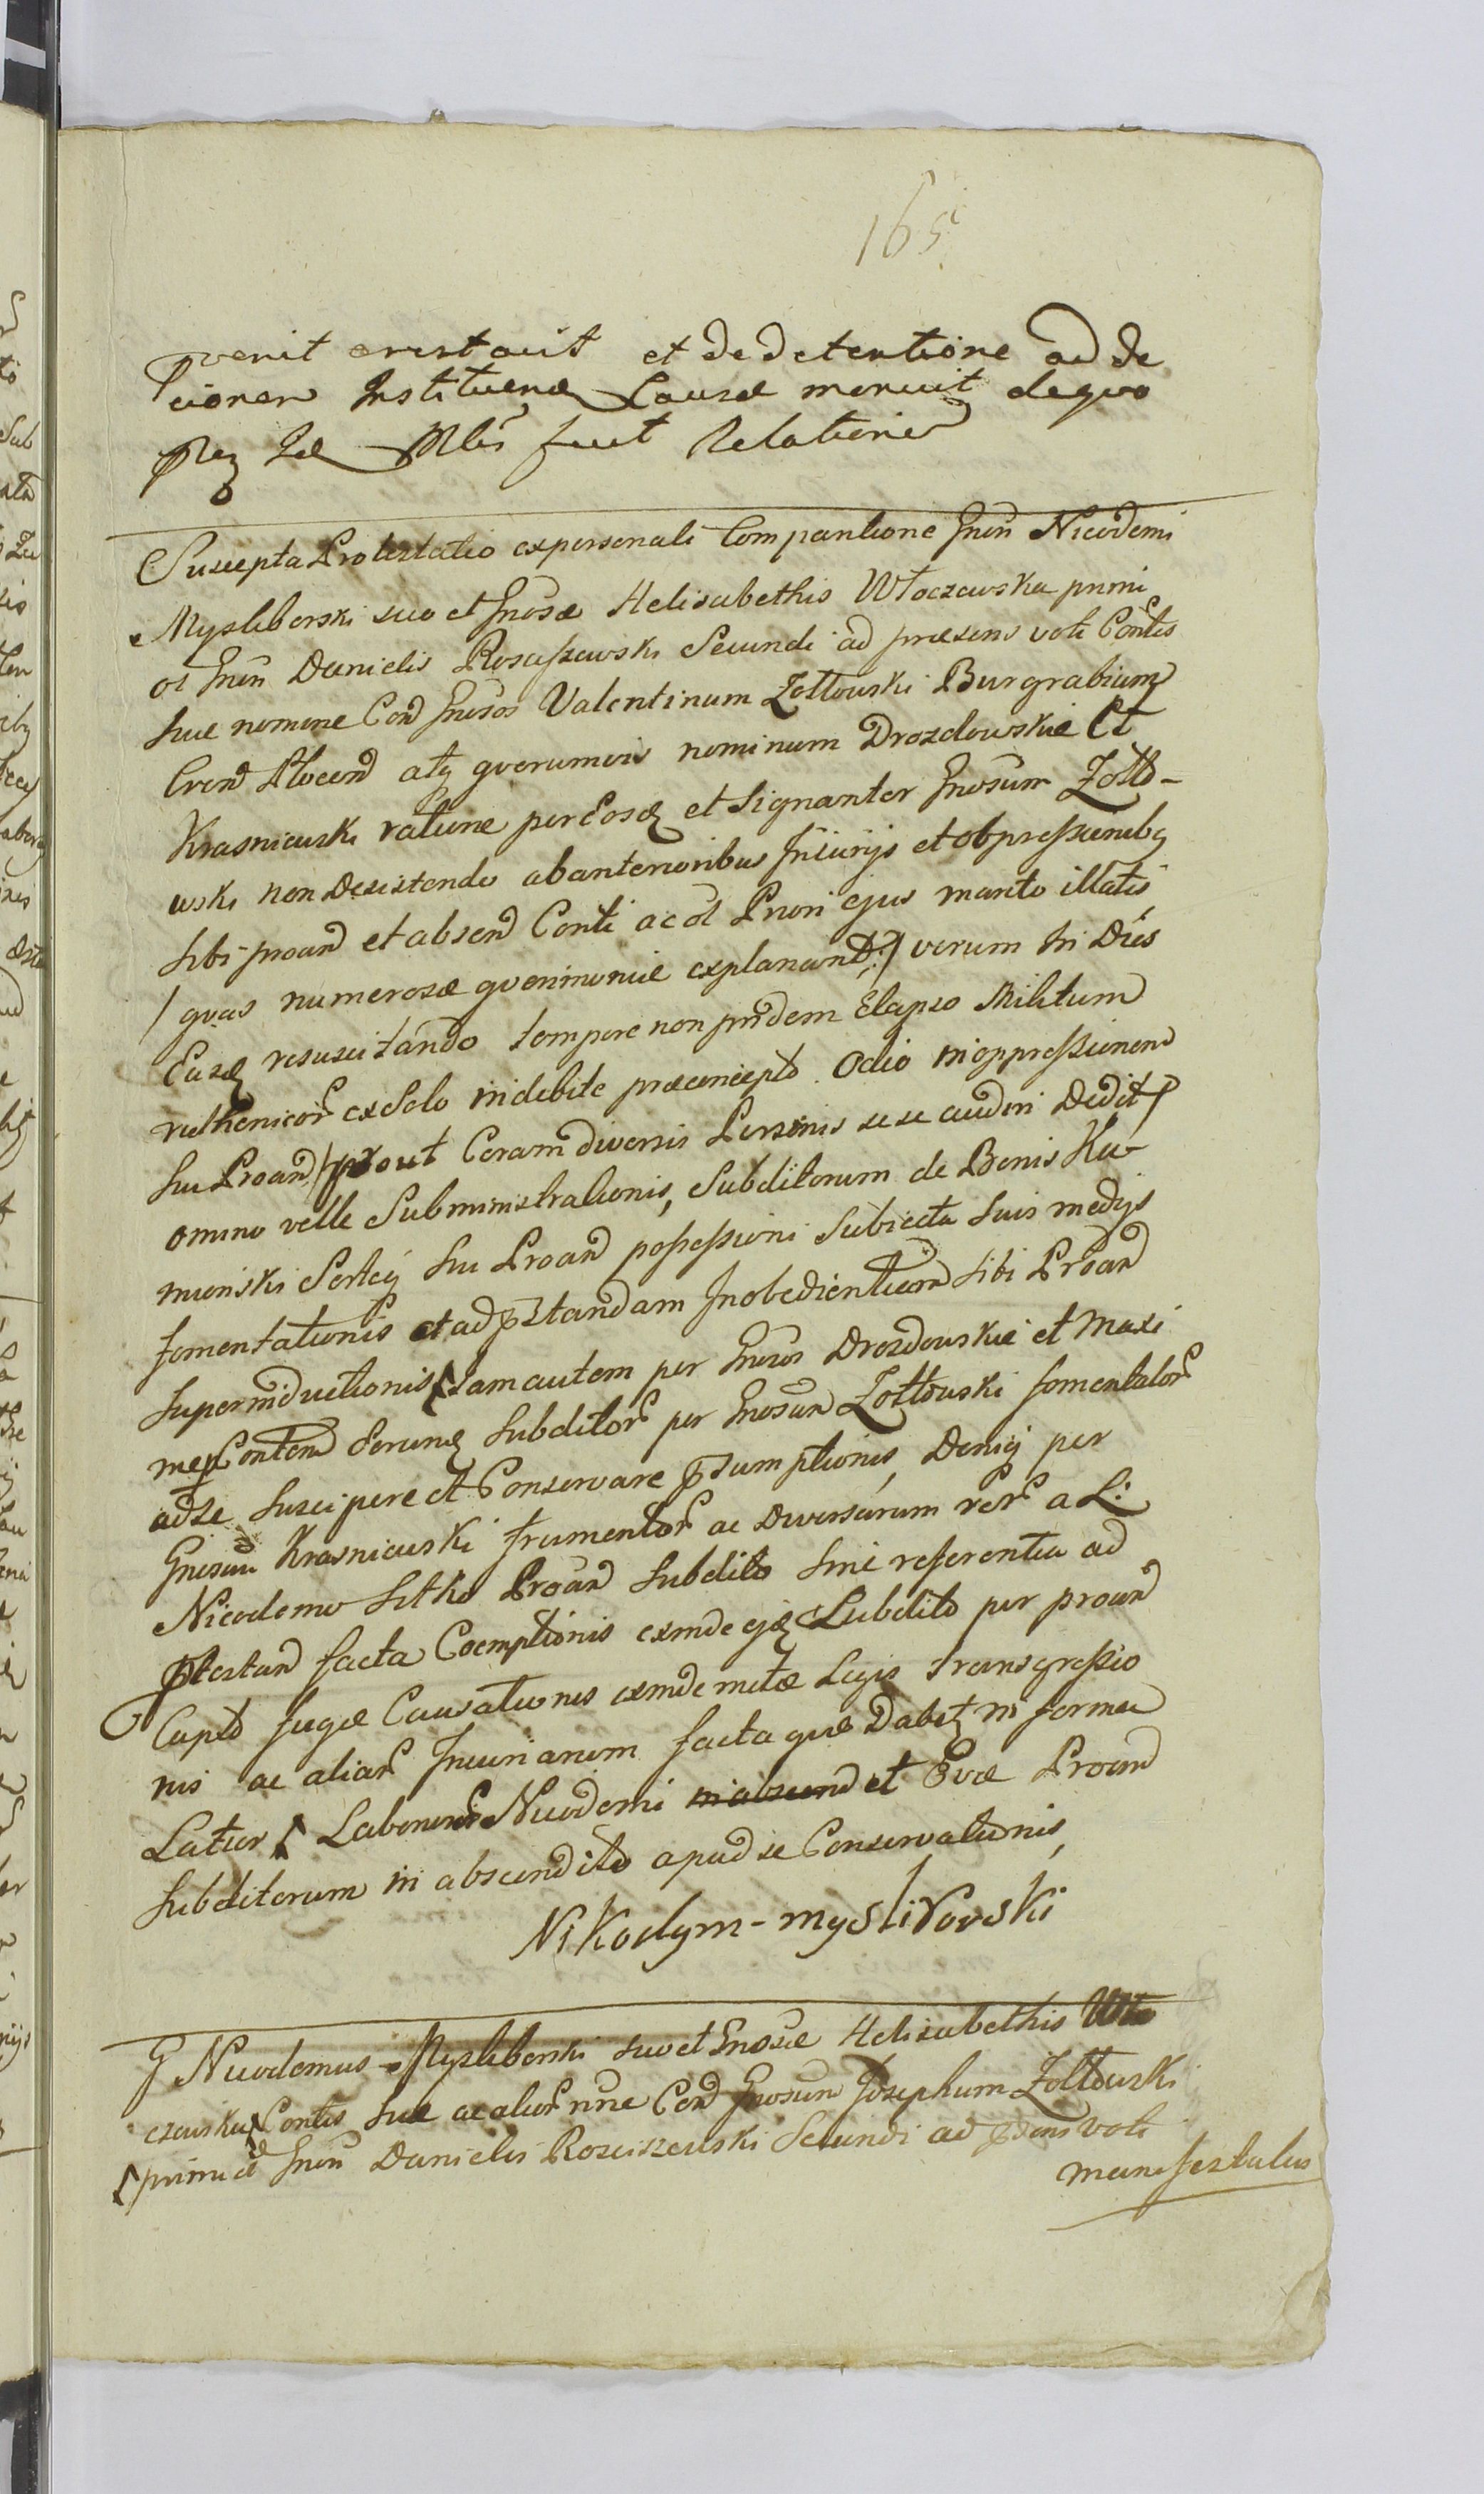 165
venit arestavit et de detentione ad de
cionem Instituend Causæ meruit de quo
fuit Relationem
Suscepta Protestatio ex personali Comparitione Gnsi Nicodemi
Mysliborski suo et Gnosæ Helisabethis Włoczewska primi
ol Gnsi Danielis Rosciszewski Secundi ad præsens voti Contis
suæ nomine Con Gnosos Valentinum Zołtowski Burgrabium
Cren Plocen atq quorumvis nominum Drozdowskie Et
Krasniewski ratione per Eosd et signanter Gnosum Zołto-
wski non Desistendo ab anterioribus Injurijs et obpressionibq
sibi proand et absend Conti ac ol Priori ejus marito illatis
/ quas numerosæ querimoniæ explanant :/ verum in Dies
Easd resuscitando tempore non pridem Elapso Militum
ruthenicor ex solo indebite præconcepto Odio in oppressionem
sui Proand / prout Coram diversis Personis se se audiri Dedit /
omino velle Subministrationis, Subditorum de Bonis Ku-
mienski Sorteq sui Proand possessioni Subiecta suis medijs
fomentationis et ad pstandam Inobedientiam sibi Proand
superinductionis, tam autem per Gnosos Drozdowskie et Maxi
meq Contem Eorund subditor per Gnosum Zołtowski fomentator
ad se suscipere et Conservare psumptionis, Deniq per
Gnosum Krasniewski frumentor ac Diversarum rer a L:
Nicodemo Sitko Proand Subdito sine referentia ad
ptestand facta Coemptionis exinde ejd Subdito per proand
Capto fugæ Causationis exinde metæ Legis transgressio
nis ac aliar Iniuriarum facta quæ Dabit in forma
Latior, Laborios Nicodemi in abscond et Evæ Proand
Subditorum in abscondito apud se Conservationis,
Nikodym - mysliborski
G Nicodemus Mysliborski suo et Gnosæ Helisabethis Wło
czewska Contis suæ ac alior nne Con Gnosum Josephum Zołtowski
primi ol Gnsi Danielis Rosciszewski Secundi ad pdens voti
manifestatus